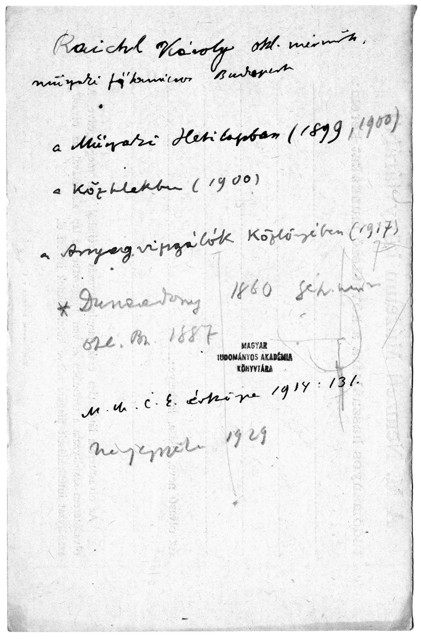 Raichl Károly okl. mérnök,
műszaki főtanácsos Budapest
a Műszaki Hetilapban (1899, 1900)
a Köztelekben (1900)
a Anyagvizsgálók Közlönyében (1917)
* 1860
okl. Bp. 1887
MAGYAR
TUDOMÁNYOS AKADÉMIA
KÖNYVTÁRA
M. M. É. E. évkönyve 1914: 131.
1929